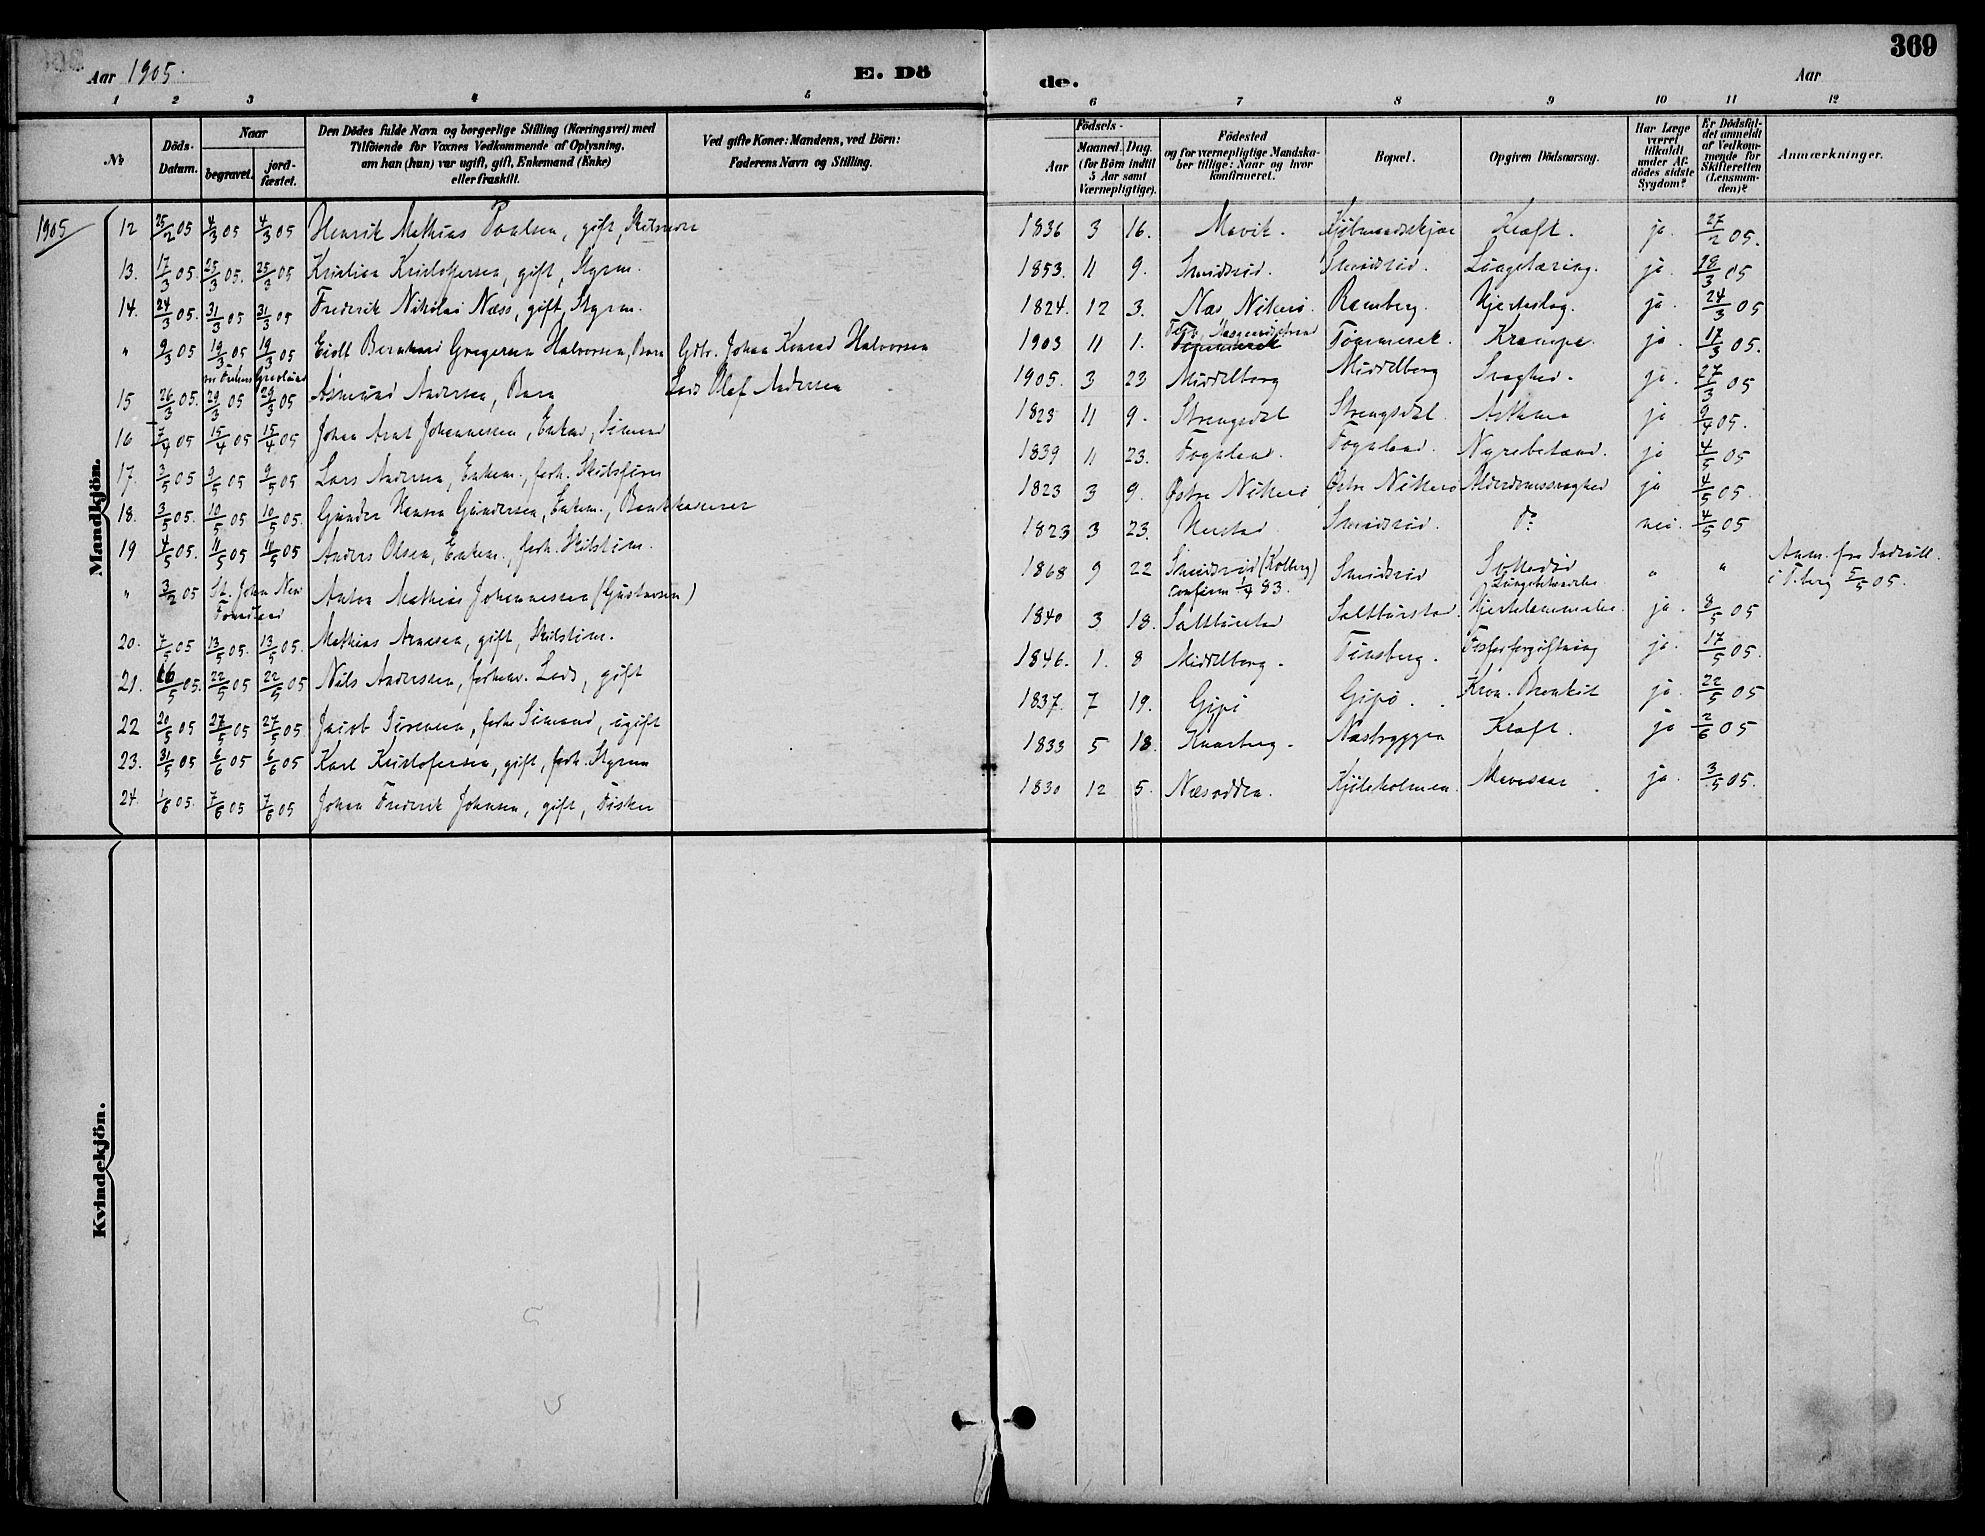 369
Aar 1905.
E. Dö
de.
Aar
1 2 3 4 5 6 7 8 9 10 11 12
No
Döds-Datum.
Naar
begravet.
jordfæstet.
Den Dödes fulde Navn og borgerlige Stilling (Næringsvei) med
Tilföiende for Voxnes Vedkommende af Oplysning,
om han (hun) var ugift, gift, Enkemand (Enke)
eller fraskilt.
Ved gifte Koner: Mandens, ved Börn:
Faderens Navn og Stilling.
Födsels-
Aar
Maaned. Dag.
(for Börn indtil
5 Aar samt
Værnepligtige).
Födested
og for værnepligtige Mandska-
ber tillige: Naar og hvor
konfirmeret.
Bopæl.
Opgiven Dödsaarsag.
Har Læge
været
tilkaldt
under Af-
dödes sidste
Sygdom?
Er Dödsfal-
det anmeldt
af Vedkom-
mende for
Skifteretten
(Lensman-
den)?
Anmærkninger.
1905
Mandkjön.
12 25/2 05 4/3 05 4/3 05 Henrik Mathias Paulsen, gift, 1836 3 16. Mevik. Kræft. ja. 27/2 05.
13. 17/3 05. 25/3 05. 25/3 05 Kristian Kristoffersen, gift, Styrm. 1853. 11 9. Smidsrød. Smidsrød. Lungetæring. ja. 18/3 05
14. 24/3 05. 31/3 05 31/3 05 Frederik Nikolai Næss, gift, Styrm. 1824. 12 3. Næs Nøtterø Ramberg. Hjerteslag. ja. 24/3 05
" 9/3 05 19/3 05 19/3 05 Eidlt Bernhard Gregersen Halvorsen, Barn Gdbr. Johan Konrad Halvorsen 1903 11 1. Tømmerek. Krampe. ja. 17/3 05.
15 26/3 05. 29/3 05 29/3 05 Åsmund Andersen, Barn Lods Olaf Andersen 1905. 3 23 Middelborg Middelborg Svaghed. ja. 27/3 05
16 7/4 05 15/4 05 15/4 05 Johan Arnt Johannessen, Enkem, Sømand 1823 11 9. Strengsdal Strengsdal. Asthma ja 9/4 05.
17. 3/5 05 9/5 05 9/5 05 Lars Andersen, Enkem., forh. Skibsfører 1839 11 23. Foynland. Foynland. Nyrebetænd. ja 4/5 05
18. 3/5 05. 10/5 05 10/5 05. Gunder Hansen Gundersen, Enkem., Bankkasserer 1823 3 9. Østre Nøtterø Østre Nøtterø Alderdomssvaghed ja 4/5 05.
19 4/5 05. 11/5 05 11/5 05 Anders Olsen, Enkem., forh. Skibstim. 1823 3 23. Herstad Smidsrød. do nei. 4/5 05
" 3/2 05 St. John New Foundland Anton Mathias Johannessen (Gustavsen) 1868 9 22 Smidsrød (Kolberg) confirm 1/4 83. Smidsrød " " Anm. fra Indrull. i T.berg 5/5 05.
20. 7/5 05 13/5 05. 13/5 05. Mathias Arnesen, gift, Skibstim. 1840 3 18. Saltbustad Saltbustad. Hjertelammelse. ja. 8/5 05
21. 16/5 05. 22/5 05 22/5 05 Nils Andersen, forhenv. Lods, gift 1846. 1. 8 Middelborg. Tønsberg. Fosforforgiftning ja. 17/5 05.
22 20/5 05 27/5 05 27/5 05 Jacob Sørensen, forh. Sømand, ugift 1837. 7 19. Gipø Gipø. Kron. Bronkit ja. 22/5 05
23. 31/5 05 6/6 05 6/6 05 Karl Kristofersen, gift, forh. Styrm 1833 5 18. Knarberg. Næsbryggen Kræft. ja 2/6 05
24. 1/6 05. 7/6 05 7/6 05 Johan Fredrik Johnsen, gift, Fisker 1830 12 5. Næsodden. Kjøleholmen. Mavesaar ja. 3/5 05.
Kvindekjön.